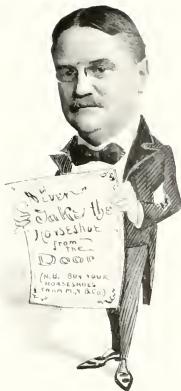 "NEVER"
Take the
HORSESHOE
from
THE
Door
(N.B. BUY YOUR
HORSESHOES
FROM